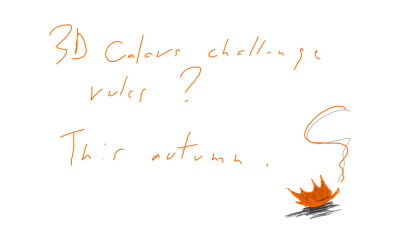 3D Colors challenge
rules ?
This autumn .